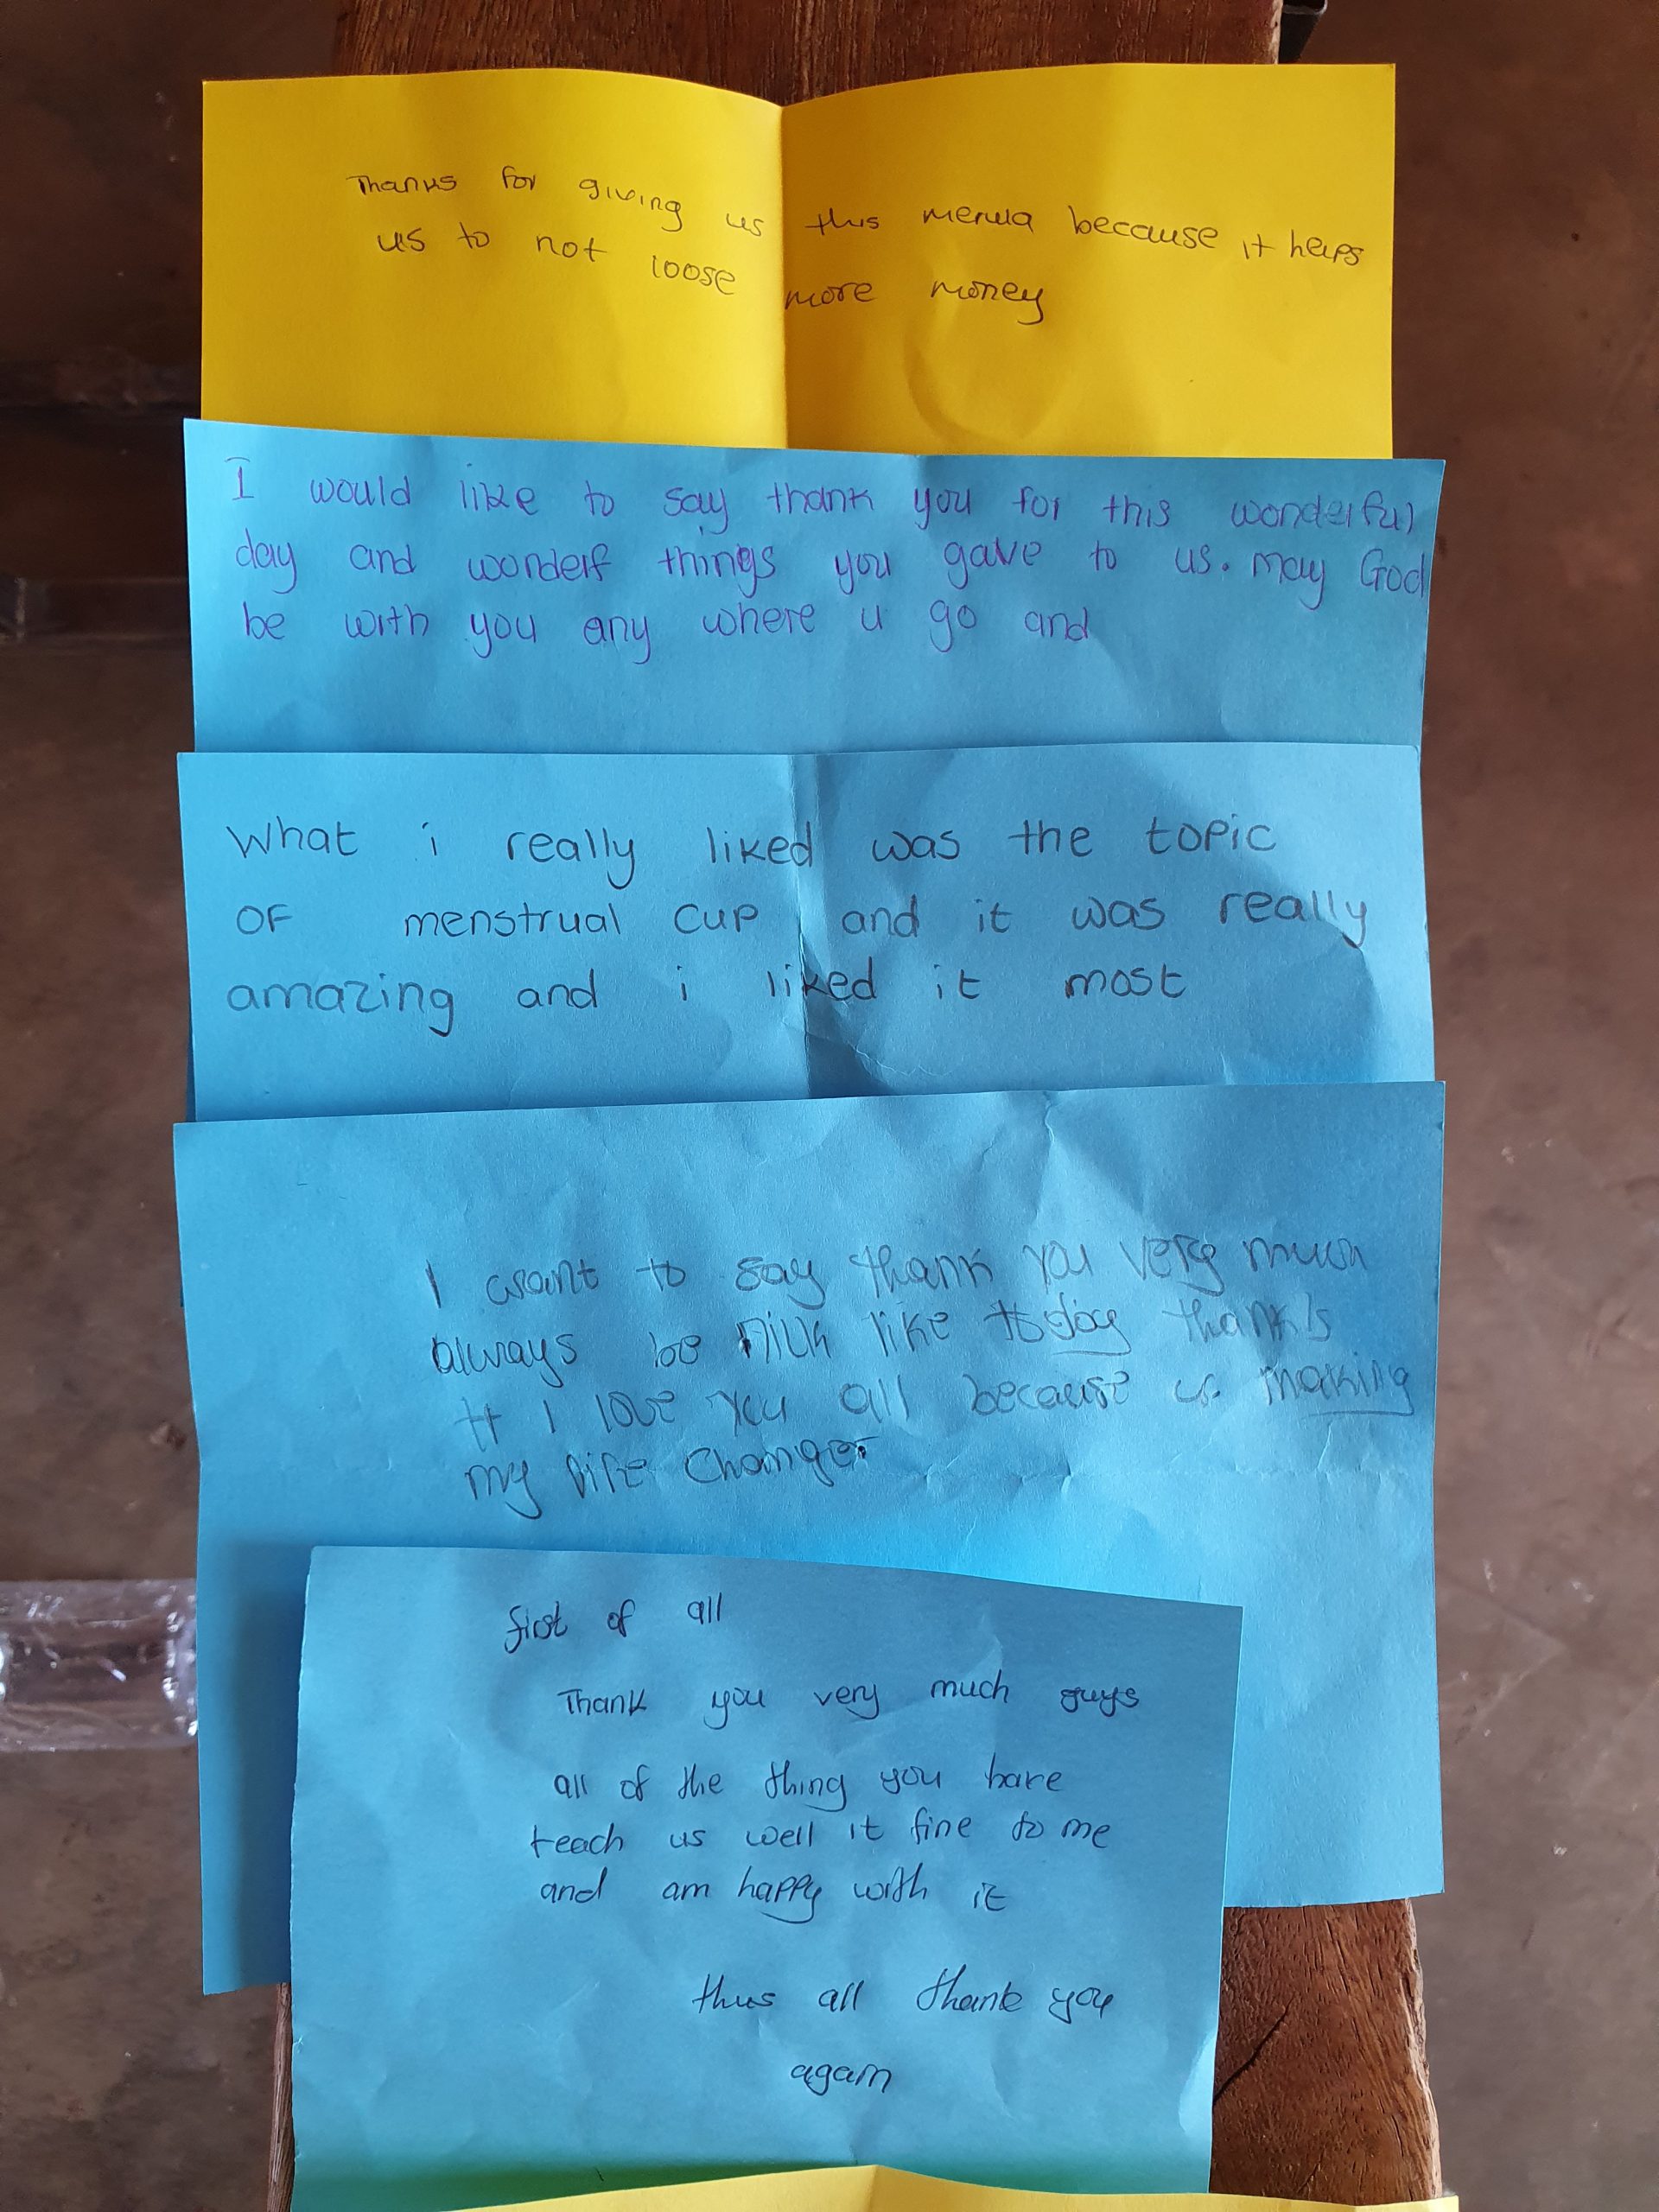 Thanks for giving us this merula because it helps
us to not loose more money
I would like to say thank you for this wonderful
day and wonderf things you gave to us. may God
be with you any where u go and
What i really liked was the topic
OF menstrual cup and it was really
amazing and i liked it most
I want to say thank you very much
always be like today thanks
I love you all because making
my life change.
first of all
Thank you very much guys
all of the thing you have
teach us well it fine to me
and am happy with it
thus all thank you
again